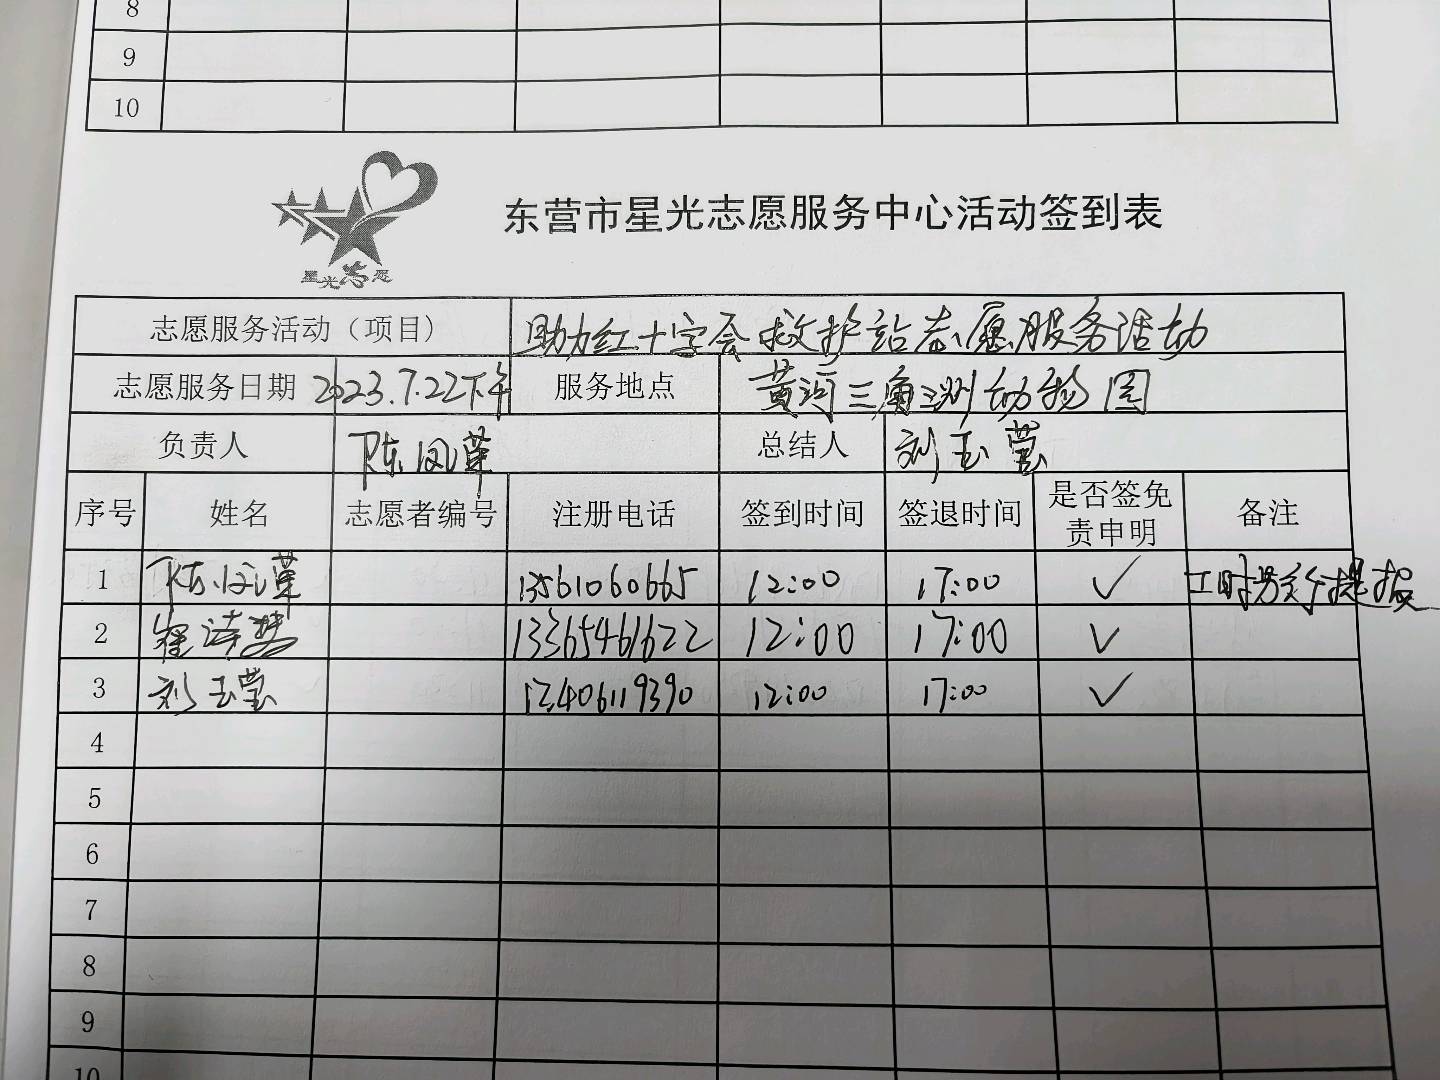 8
9
10
星光志愿
东营市星光志愿服务中心活动签到表
志愿服务活动（项目） 助力红十字会救护站志愿服务活动
志愿服务日期 2023.7.22下午 服务地点 黄河三角洲动物园
负责人 陈凤莲 总结人 刘玉莹
序号 姓名 志愿者编号 注册电话 签到时间 签退时间 是否签免责申明 备注
1 陈凤莲 13561060665 12:00 17:00 ✓ 工时另行提报
2 崔诗梦 13365461622 12:00 17:00 ✓
3 刘玉莹 13406119390 12:00 17:00 ✓
4
5
6
7
8
9
10